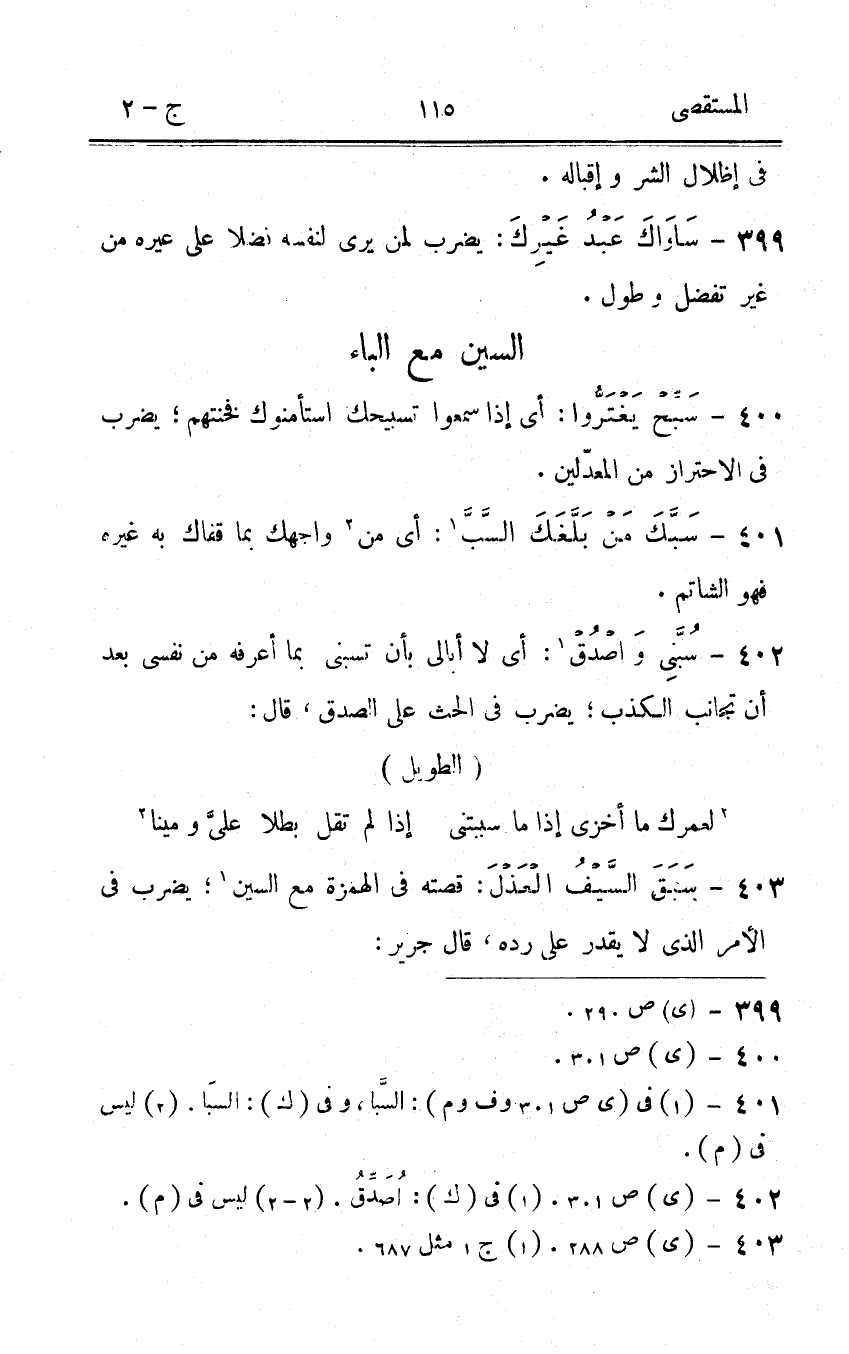 المستقصى ١١٥ ج – ٢
فى إظلال الشر و إقباله .
٣٩٩ – سَاوَاكَ عَبْدُ غَيْرِكَ : يضرب لمن يرى لنفسه نضلا على عيره من
غير تفضل و طول .
السين مع الباء
٤٠٠ – سَبِّحْ يَغْتَرُّوا : أى إذا سمعوا تسبيحك استأمنوك فخنتهم ؛ يضرب
فى الاحتراز من المعدّلين .
٤٠١ – سَبَّكَ مَنْ بَلَّغَكَ السَّبَّ١ : أى من٢ واجهك بما قفاك به غيره
فهو الشاتم .
٤٠٢ – سُبَّنِى وَ اصْدُقْ١ : أى لا أبالى بأن تسبنى بما أعرفه من نفسى بعد
أن تجانب الكذب ؛ يضرب فى الحث على الصدق ، قال :
( الطويل )
٢لعمرك ما أخزى إذا ما سببتنى إذا لم تقل بطلا علىَّ و مينا٢
٤٠٣ – سَبَقَ السَّيْفُ الْعَذْلَ : قصته فى الهمزة مع السين١ ؛ يضرب فى
الأمر الذى لا يقدر على رده ، قال جرير :
٣٩٩ – (ى) ص ٢٩٠ .
٤٠٠ – (ى) ص ٣٠١ .
٤٠١ – (١) فى (ى ص ٣٠١ وف وم) : السَّبّا ، و فى (ك) : السبَا . (٢) ليس
فى (م) .
٤٠٢ – (ى) ص ٣٠١ . (١) فى (ك) : اُصَدِّقُ . (٢–٢) ليس فى (م) .
٤٠٣ – (ى) ص ٢٨٨ . (١) ج ١ مثل ٦٨٧ .